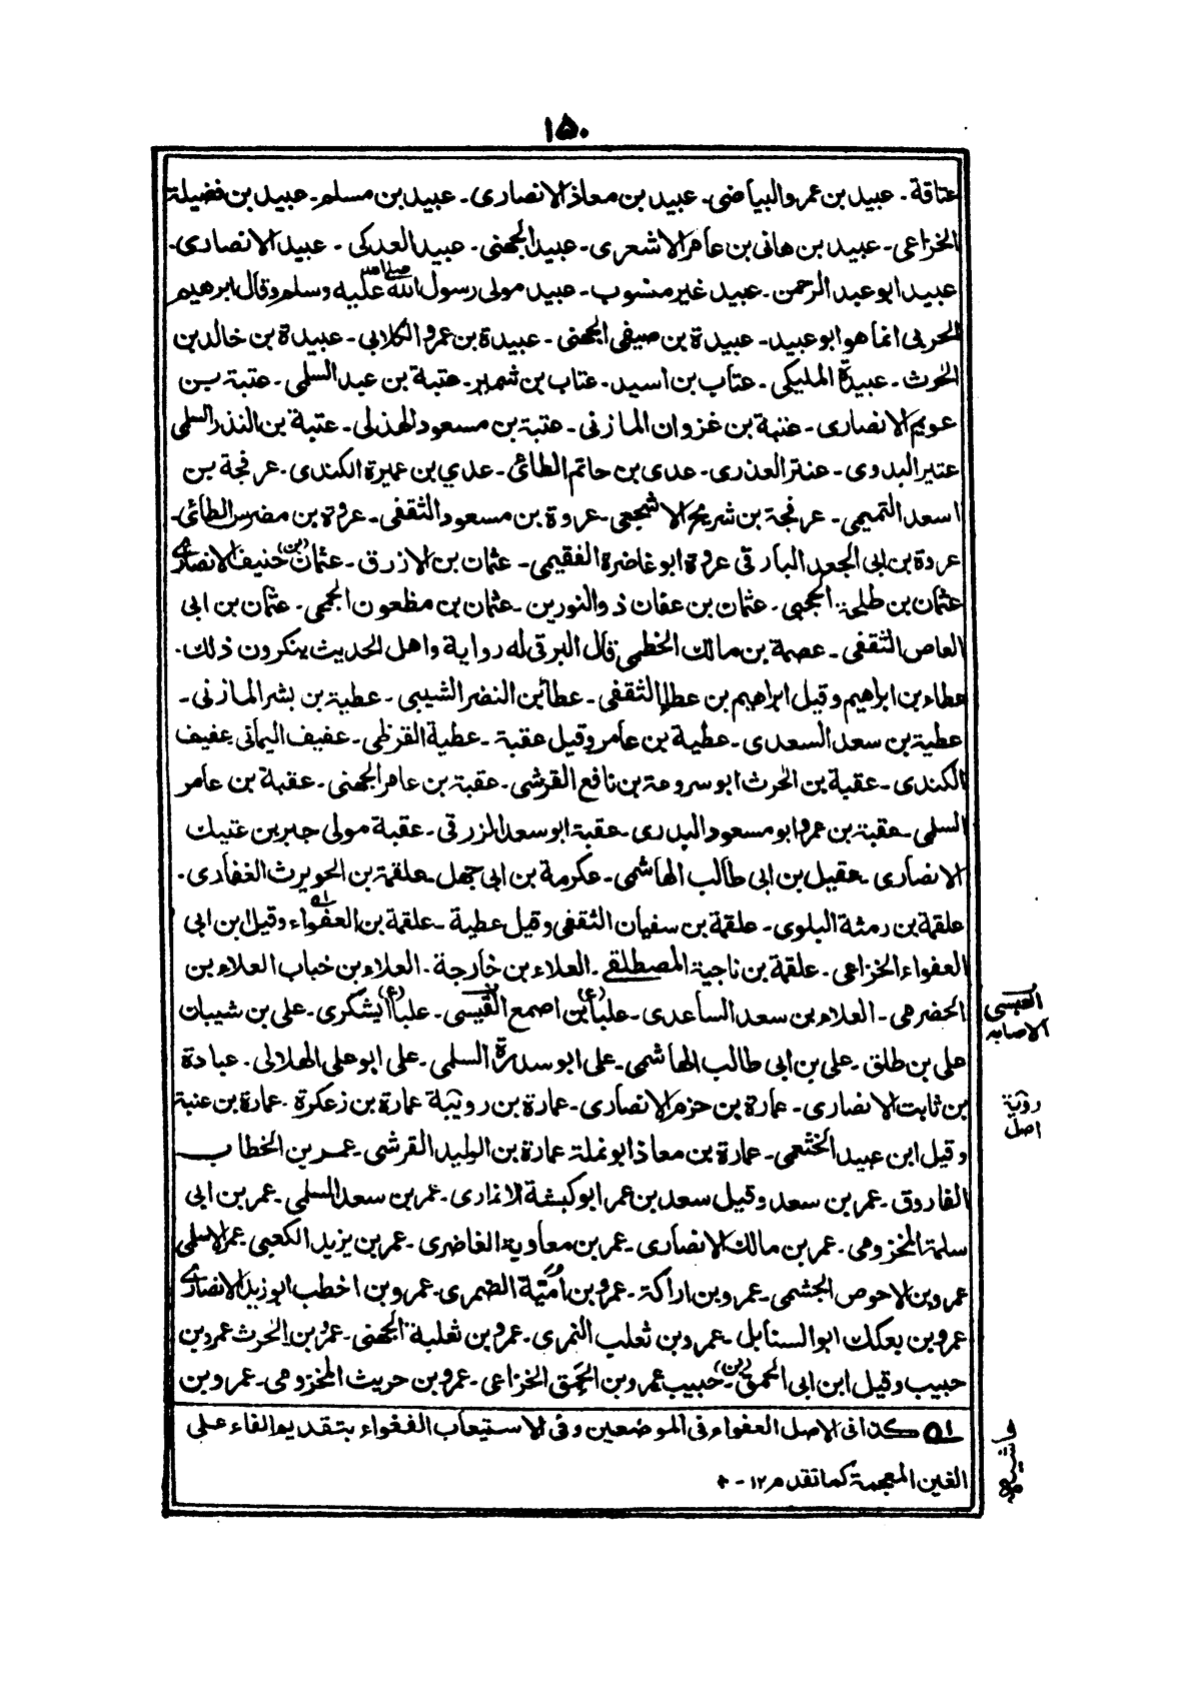 ١٥٠
عتاقة ـ عبيد بن عمرو البياضي ـ عبيد بن معاذ الانصاری ـ عبيد بن مسلم ـ عبيد بن فضيلة
الخزاعی ـ عبيد بن هانی بن عامر الاشعری ـ عبيد الجهنی ـ عبيد العدکی ـ عبيد الانصاری ـ
عبيد ابو عبد الرحمن ـ عبيد غير منسوب ـ عبيد مولی رسول الله صلی الله عليه وسلم وقال ابرهيم
الحربی انما هو ابو عبيد ـ عبيدة بن صيفی الجهنی ـ عبيدة بن عمرو الکلابی ـ عبيدة بن خالد بن
الحرث ـ عبيدة المليکی ـ عتاب بن اسيد ـ عتاب بن شمير ـ عتبة بن عبد السلمی ـ عتبة بن
عويم الانصاری ـ عتبة بن غزوان المازنی ـ عتبة بن مسعود الهذلی ـ عتبة بن الندر السلمی
عتير البدوی ـ عنتر العذری ـ عدی بن حاتم الطائی ـ عدي بن عميرة الکندی ـ عرفجة بن
اسعد التميمی ـ عرفجة بن شريح الاشجعی ـ عروة بن مسعود الثقفی ـ عروة بن مضرس الطائی ـ
عروة بن ابی الجعد البارقی عروة ابو غاضرة الفقيمی ـ عثمان بن الازرق ـ عثمان (بن) حنيف الانصاری
عثمان بن طلحة الحجبی ـ عثمان بن عفان ذو النورين ـ عثمان بن مظعون الجمحی ـ عثمان بن ابی
العاص الثقفی ـ عصمة بن مالك الخطمی قال البرقی له رواية واهل الحديث ينکرون ذلك ـ
عطاء بن ابراهيم وقيل ابراهيم بن عطا الثقفی ـ عطا بن النضر الشيبی ـ عطية بن بشر المازنی ـ
عطية بن سعد السعدی ـ عطية بن عامر وقيل عقبة ـ عطية القرظی ـ عفيف اليمانی عفيف
الکندی ـ عقبة بن الحرث ابو سروعة بن نافع القرشی ـ عقبة بن عامر الجهنی ـ عقبة بن عامر
السلمی ـ عقبة بن عمرو ابو مسعود البدری ـ عقبة ابو سعد الزرقی ـ عقبة مولی جبر بن عتيك
الانصاری ـ عقيل بن ابی طالب الهاشمی ـ عکرمة بن ابی جهل ـ علقمة بن الحويرث الغفاری ـ
علقمة بن رمثة البلوی ـ علقمة بن سفيان الثقفی وقيل عطية ـ علقمة بن العفواء ٥١ وقيل ابن ابی
العفواء الخزاعی ـ علقمة بن ناجية المصطلقی ـ العلاء بن خارجة ـ العلاء بن خباب العلاء بن
الحضرمی ـ العلاء بن سعد الساعدی ـ علبا (ء) بن اصمع القيسی ـ علبا (ء) اليشکری ـ علی بن شيبان
العبسی
الاصابه
علی بن طلق ـ علی بن ابی طالب الهاشمی ـ علی ابو سدرة السلمی ـ علی ابو علی الهلالی ـ عبادة
بن ثابت الانصاری ـ عمارة بن حزم الانصاری ـ عمارة بن رويبة عمارة بن زعکرة ـ عمارة بن عنبة
رؤبة
اصل
وقيل ابن عبيد الخثعمی ـ عمارة بن معاذ ابو نملة عمارة بن الوليد القرشی ـ عمر بن الخطاب
الفاروق ـ عمر بن سعد وقيل سعد بن عمر ابو کبشة الانماری ـ عمر بن سعد السلمی ـ عمر بن ابی
سلمة المخزومی ـ عمر بن مالك الانصاری ـ عمر بن معاوية الغاضری ـ عمر بن يزيد الکعبی عمر الاسلمی
عمرو بن الاحوص الجشمی ـ عمرو بن اراکة ـ عمرو بن أميّة الضمری ـ عمرو بن اخطب ابو زيد الانصاری
عمرو بن بعکك ابو السنابل ـ عمرو بن ثعلب النمری ـ عمرو بن ثعلبة الجهنی ـ عمرو بن الحرث عمرو بن
حبيب وقيل ابن ابی الحمق ـ (بن) حبيب عمرو بن الحَمِق الخزاعی ـ عمرو بن حريث المخزومی ـ عمرو بن
٥١ کذا فی الاصل العفواء فی الموضعين وفی الاستيعاب الفغواء بتقديم الفاء علی
الغين المعجمة کما تقدم ١٢ ـ
حاشيه